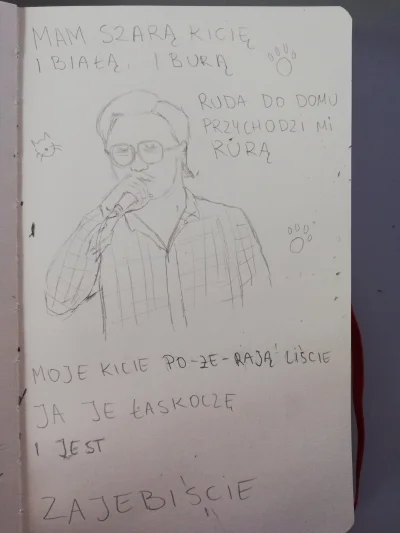 MAM SZARĄ KICIĘ
I BIAŁĄ, I BURĄ
RUDA DO DOMU
PRZYCHODZI MI
RURĄ
MOJE KICIE PO-ŻE-RAJĄ LIŚCIE
JA JE ŁASKOCZĘ
I JEST
ZAJEBIŚCIE